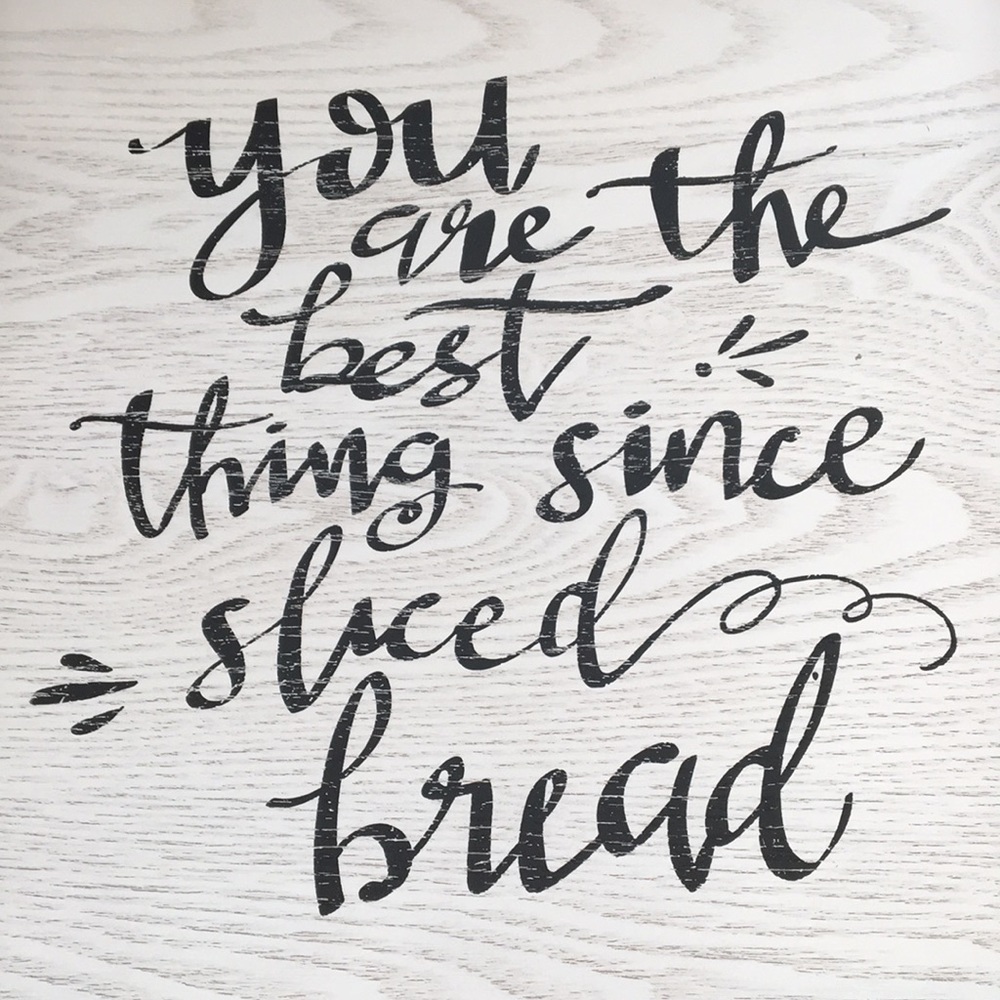 you
are the
best
thing since
sliced
bread